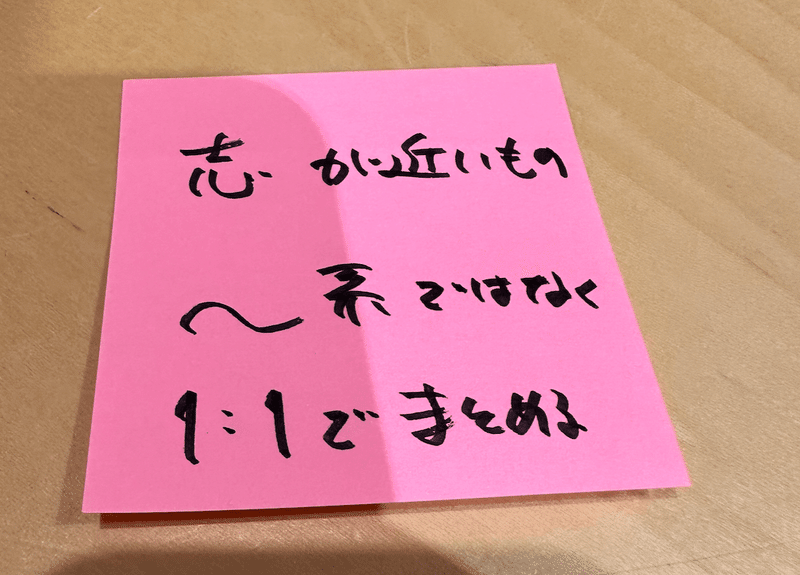 志が近いもの
〜系ではなく
1:1でまとめる